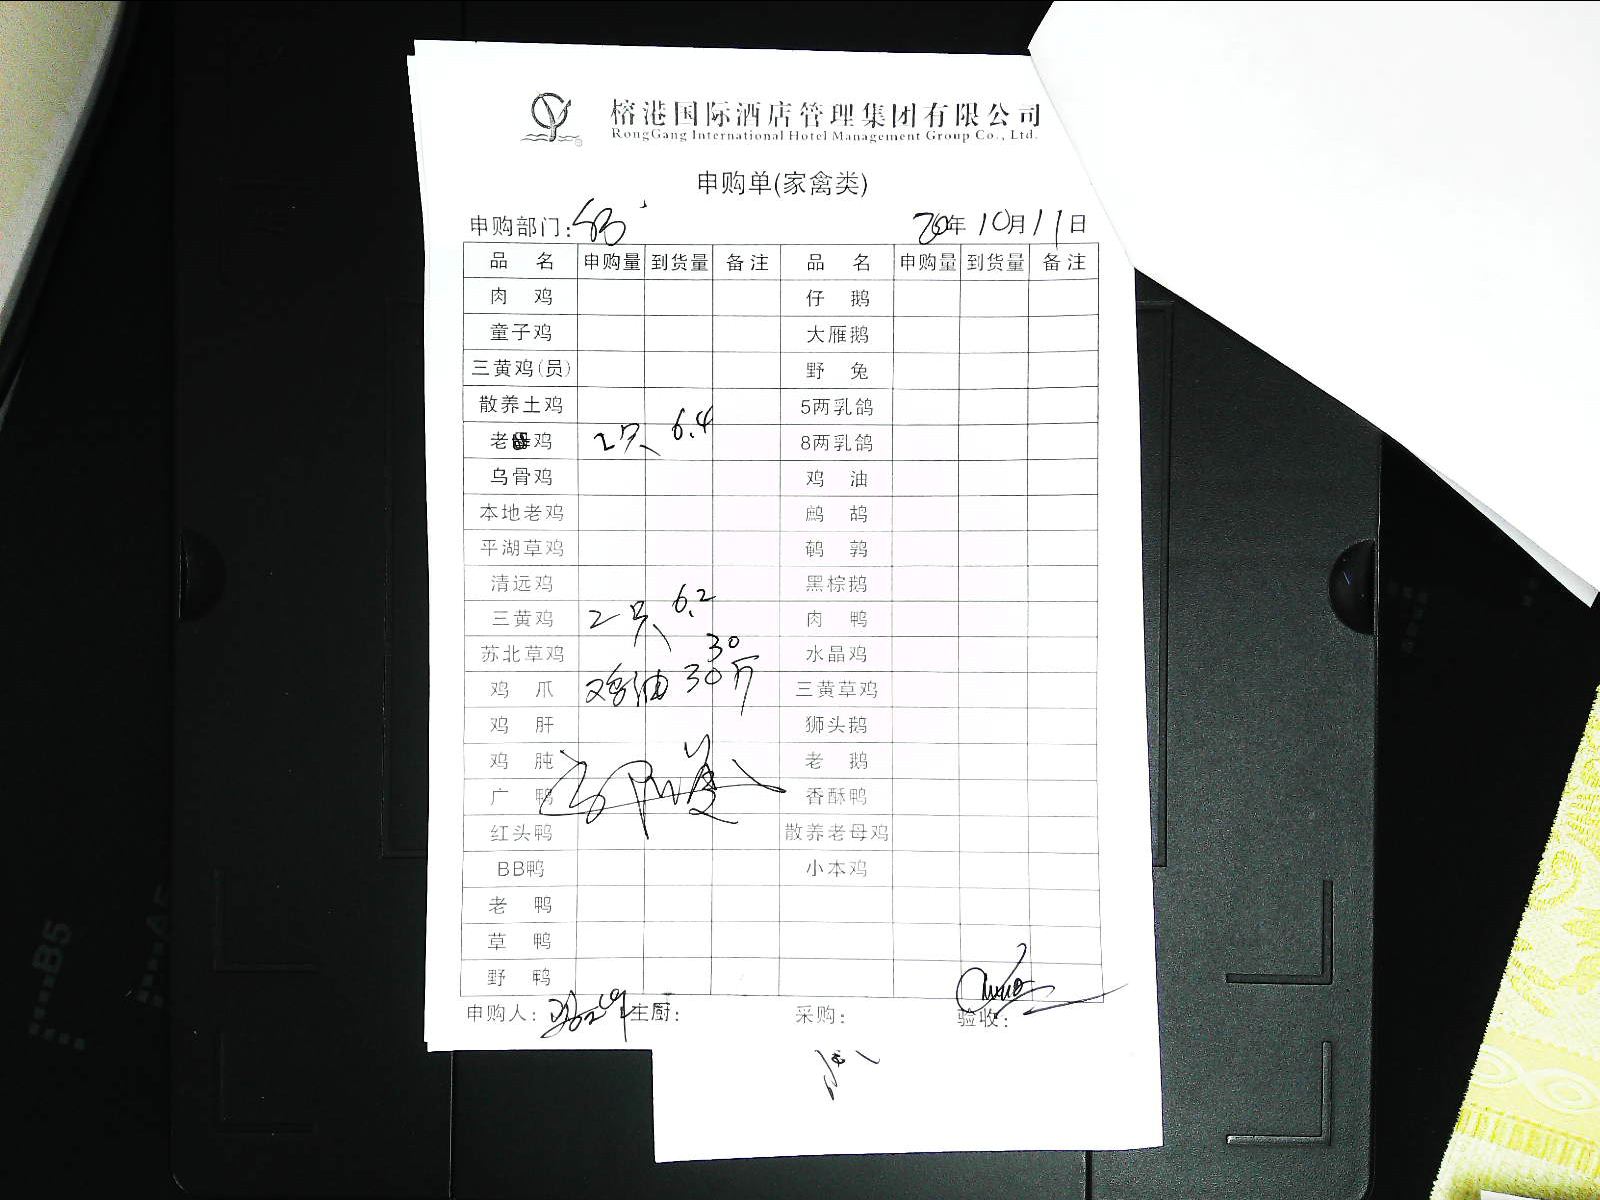 榕港国际酒店管理集团有限公司
RongGang International Hotel Management Group Co., Ltd.
申购单(家禽类)
申购部门: 20年10月11日
品 名 申购量 到货量 备注 品 名 申购量 到货量 备注
肉 鸡 仔 鹅
童子鸡 大雁鹅
三黄鸡(员) 野 兔
散养土鸡 5两乳鸽
老母鸡 2只 6.4 8两乳鸽
乌骨鸡 鸡 油
本地老鸡 鹧 鸪
平湖草鸡 鹌 鹑
清远鸡 黑棕鹅
三黄鸡 2只 6.2 肉 鸭
苏北草鸡 30 水晶鸡
鸡 爪 鸡油 30斤 三黄草鸡
鸡 肝 狮头鹅
鸡 肫 老 鹅
广 鸭 香酥鸭
红头鸭 散养老母鸡
BB鸭 小本鸡
老 鸭
草 鸭
野 鸭
申购人: 主厨: 采购: 验收:
B5